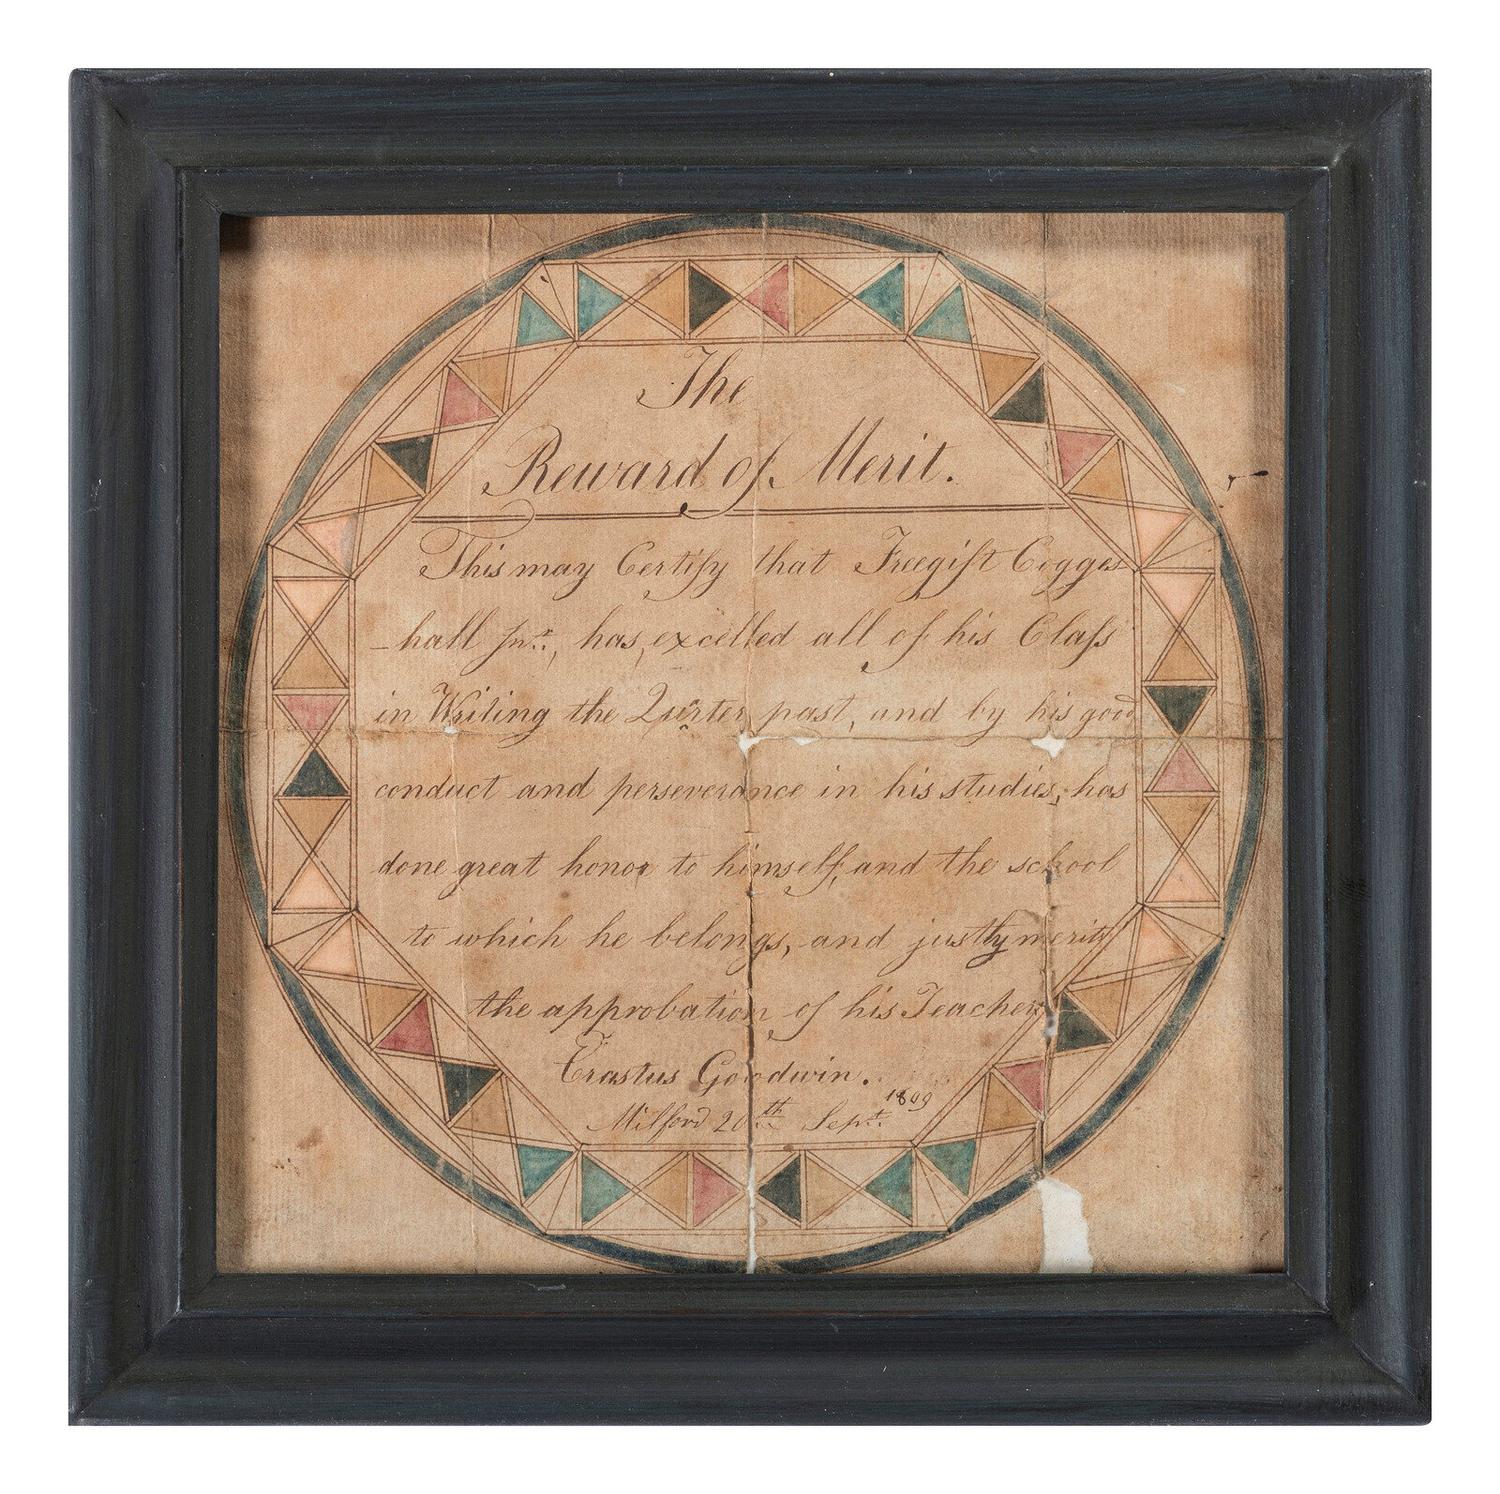 The
Reward of Merit.
This may Certify that Freegift Cogges
-hall Jnr., has, excelled all of his Class
in Writing the Qurter past, and by his good
conduct and perseverance in his studies, has
done great honor to himself, and the school
to which he belongs, and justly merits
the approbation of his Teacher
Erastus Goodwin.
Milford 20th Sept. 1809